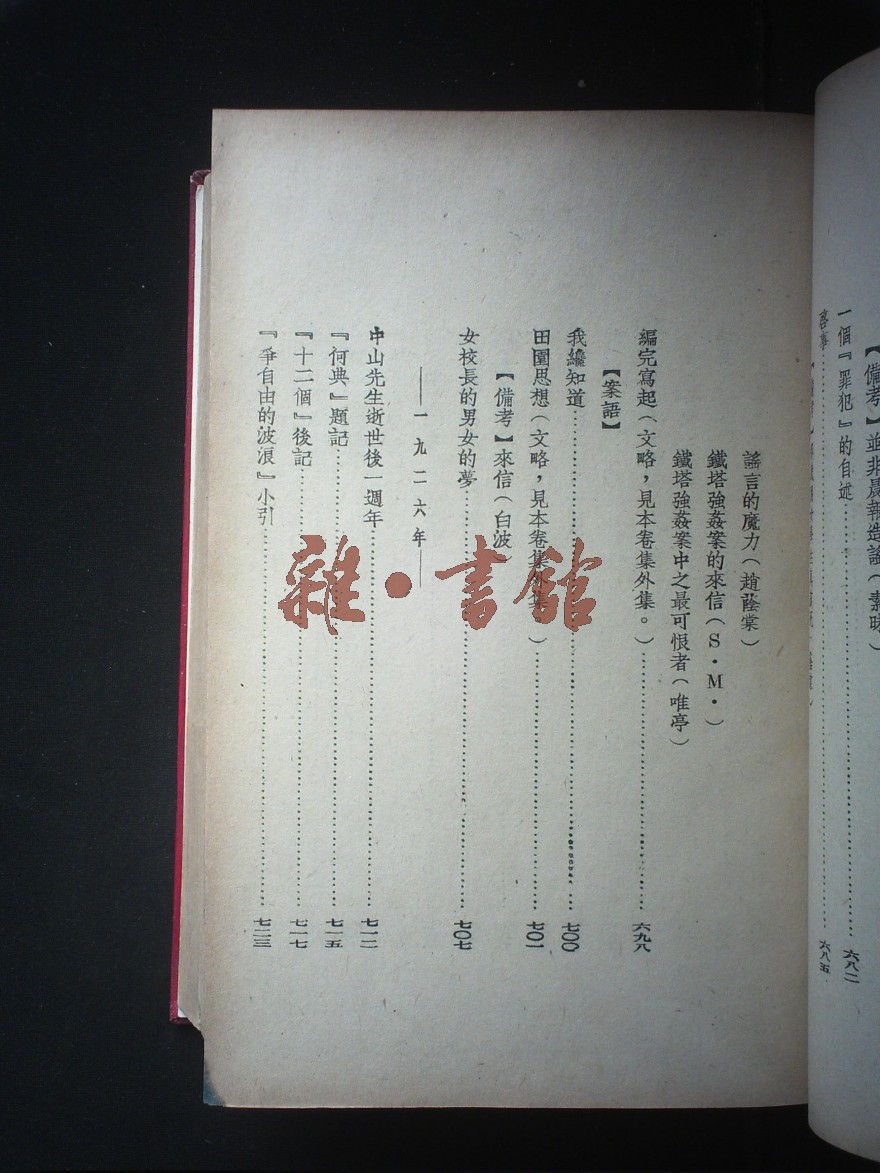 【備考】並非晨報造謠（素昧）
一個『罪犯』的自述……六八二
啓事……六八五
謠言的魔力（趙蔭棠）
鐵塔強姦案的來信（S·M·）
鐵塔強姦案中之最可恨者（唯亭）
編完寫起（文略，見本卷集外集。）……六九八
【案語】
我纔知道……七〇〇
田園思想（文略，見本卷集外集。）……七〇一
【備考】來信（白波）
女校長的男女的夢……七〇七
——一九二六年——
中山先生逝世後一週年……七一二
『何典』題記……七一五
『十二個』後記……七一七
『爭自由的波浪』小引……七二三
雜·書館